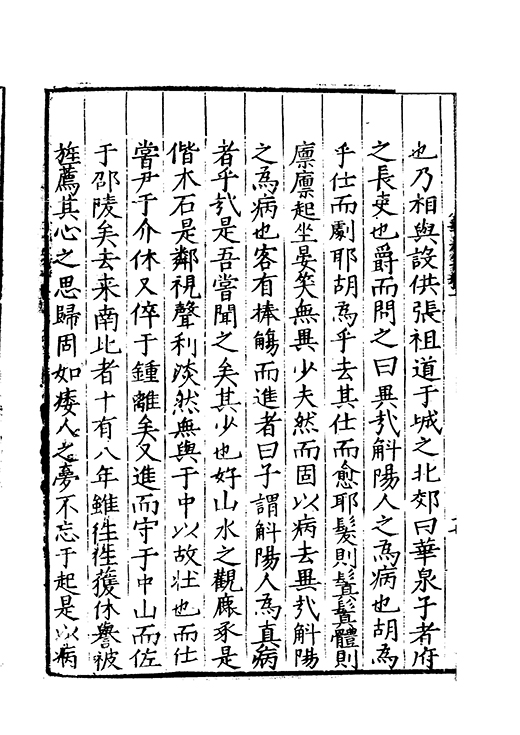 也乃相與設供張祖道于城之北郊曰華泉子者府
之長吏也爵而問之曰異㢤斛陽人之為病也胡為
乎仕而劇耶胡為乎去其仕而愈耶髮則鬒鬒體則
廩廩起坐晏矣無異少夫然而固以病去異㢤斛陽
之為病也客有捧觴而進者曰子謂斛陽人為真病
者乎㢤是吾嘗聞之矣其少也好山水之觀麋豕是
偕木石是鄰視聲利淡然無與于中以故壯也而仕
嘗尹于介休又倅于鍾離矣又進而守于中山而佐
于邵陵矣去来南北者十有八年雖徃徃獲休譽被
旌薦其心之思歸固如痿人之夢不忘于起是以病